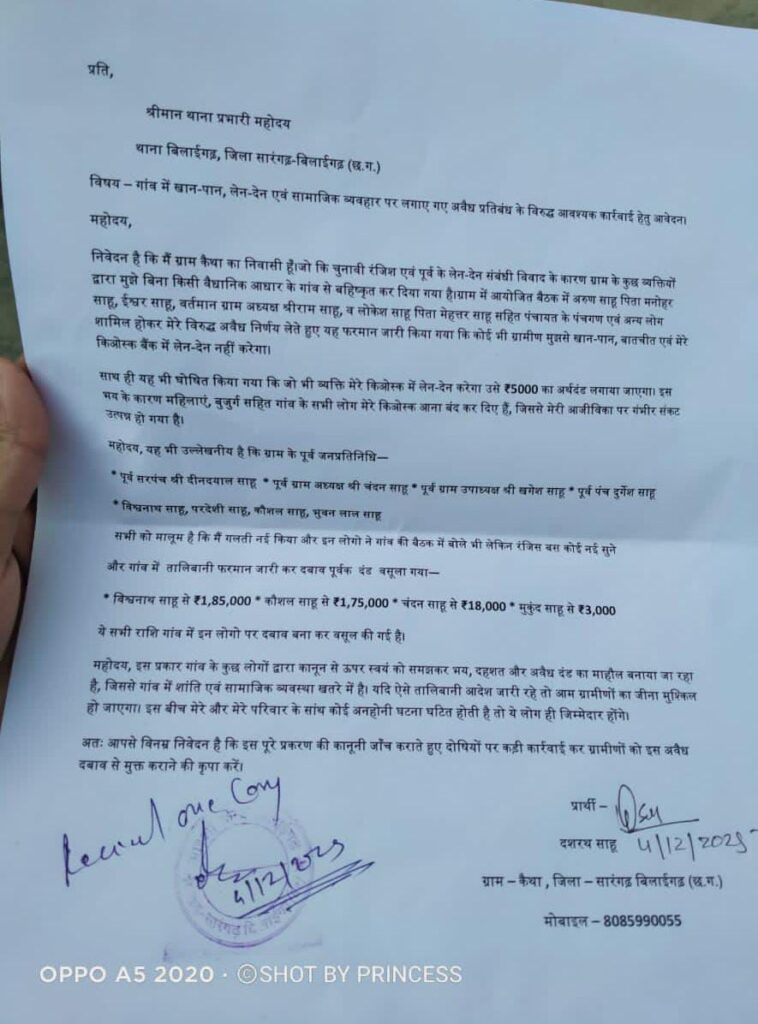 प्रति,
श्रीमान थाना प्रभारी महोदय
थाना बिलाईगढ़, जिला सारंगढ़-बिलाईगढ़ (छ.ग.)
विषय – गांव में खान-पान, लेन-देन एवं सामाजिक व्यवहार पर लगाए गए अवैध प्रतिबंध के विरुद्ध आवश्यक कार्रवाई हेतु आवेदन।
महोदय,
निवेदन है कि मैं ग्राम कैथा का निवासी हूँ।जो कि चुनावी रंजिश एवं पूर्व के लेन-देन संबंधी विवाद के कारण ग्राम के कुछ व्यक्तियों
द्वारा मुझे बिना किसी वैधानिक आधार के गांव से बहिष्कृत कर दिया गया है।ग्राम में आयोजित बैठक में अरुण साहू पिता मनोहर
साहू, ईश्वर साहू, वर्तमान ग्राम अध्यक्ष श्रीराम साहू, व लोकेश साहू पिता मेहत्तर साहू सहित पंचायत के पंचगण एवं अन्य लोग
शामिल होकर मेरे विरुद्ध अवैध निर्णय लेते हुए यह फरमान जारी किया गया कि कोई भी ग्रामीण मुझसे खान-पान, बातचीत एवं मेरे
किओस्क बैंक में लेन-देन नहीं करेगा।
साथ ही यह भी घोषित किया गया कि जो भी व्यक्ति मेरे किओस्क में लेन-देन करेगा उसे ₹5000 का अर्थदंड लगाया जाएगा। इस
भय के कारण महिलाएं, बुजुर्ग सहित गांव के सभी लोग मेरे किओस्क आना बंद कर दिए हैं, जिससे मेरी आजीविका पर गंभीर संकट
उत्पन्न हो गया है।
महोदय, यह भी उल्लेखनीय है कि ग्राम के पूर्व जनप्रतिनिधि—
* पूर्व सरपंच श्री दीनदयाल साहू * पूर्व ग्राम अध्यक्ष श्री चंदन साहू * पूर्व ग्राम उपाध्यक्ष श्री खगेश साहू * पूर्व पंच दुर्गेश साहू
* विश्वनाथ साहू, परदेशी साहू, कौशल साहू, भुवन लाल साहू
सभी को मालूम है कि मैं गलती नई किया और इन लोगो ने गांव की बैठक में बोले भी लेकिन रंजिस बस कोई नई सुने
और गांव में तालिबानी फरमान जारी कर दबाव पूर्वक दंड वसूला गया—
* विश्वनाथ साहू से ₹1,85,000 * कौशल साहू से ₹1,75,000 * चंदन साहू से ₹18,000 * मुकुंद साहू से ₹3,000
ये सभी राशि गांव में इन लोगो पर दबाव बना कर वसूल की गई है।
महोदय, इस प्रकार गांव के कुछ लोगों द्वारा कानून से ऊपर स्वयं को समझकर भय, दहशत और अवैध दंड का माहौल बनाया जा रहा
है, जिससे गांव में शांति एवं सामाजिक व्यवस्था खतरे में है। यदि ऐसे तालिबानी आदेश जारी रहे तो आम ग्रामीणों का जीना मुश्किल
हो जाएगा। इस बीच मेरे और मेरे परिवार के सांथ कोई अनहोनी घटना घटित होती है तो ये लोग ही जिम्मेदार होंगे।
अतः आपसे विनम्र निवेदन है कि इस पूरे प्रकरण की कानूनी जाँच कराते हुए दोषियों पर कड़ी कार्रवाई कर ग्रामीणों को इस अवैध
दबाव से मुक्त कराने की कृपा करें।
one Copy
4/12/2025
प्रार्थी –
दशरथ साहू 4/12/2025
ग्राम – कैथा , जिला – सारंगढ़ बिलाईगढ़ (छ.ग.)
मोबाइल – 8085990055
OPPO A5 2020 · ©SHOT BY PRINCESS